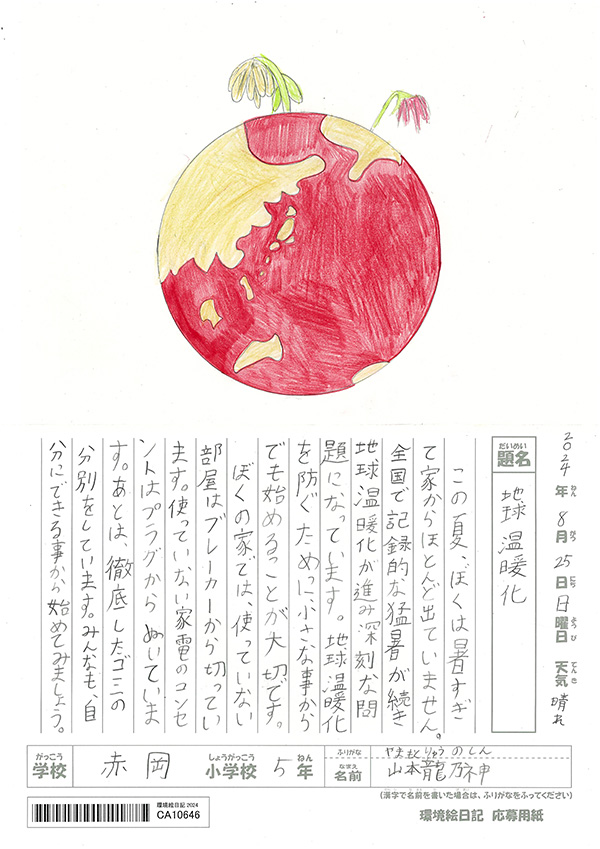 2024年ねん8月がつ25日にち日曜日ようび 天気てんき晴れ
だいめい
題名
地球温暖化
この夏、ぼくは暑すぎ
て家からほとんど出ていません。
全国で記録的な猛暑が続き
地球温暖化が進み深刻な問
題になっています。地球温暖化
を防ぐために小さな事から
でも始めることが大切です。
ぼくの家では、使っていない
部屋はブレーカーから切ってい
ます。使っていない家電のコンセ
ントはプラグからぬいていま
す。あとは、徹底したゴミの
分別をしています。みんなも、自
分にできる事から始めてみましょう。
がっこう 学校 赤岡 しょうがっこう 小学校 5 ねん 年
ふりがな やまもとりゅうのしん
なまえ 名前 山本龍乃神
(漢字で名前を書いた場合は、ふりがなをふってください)
環境絵日記 2024
CA10646
環境絵日記 応募用紙